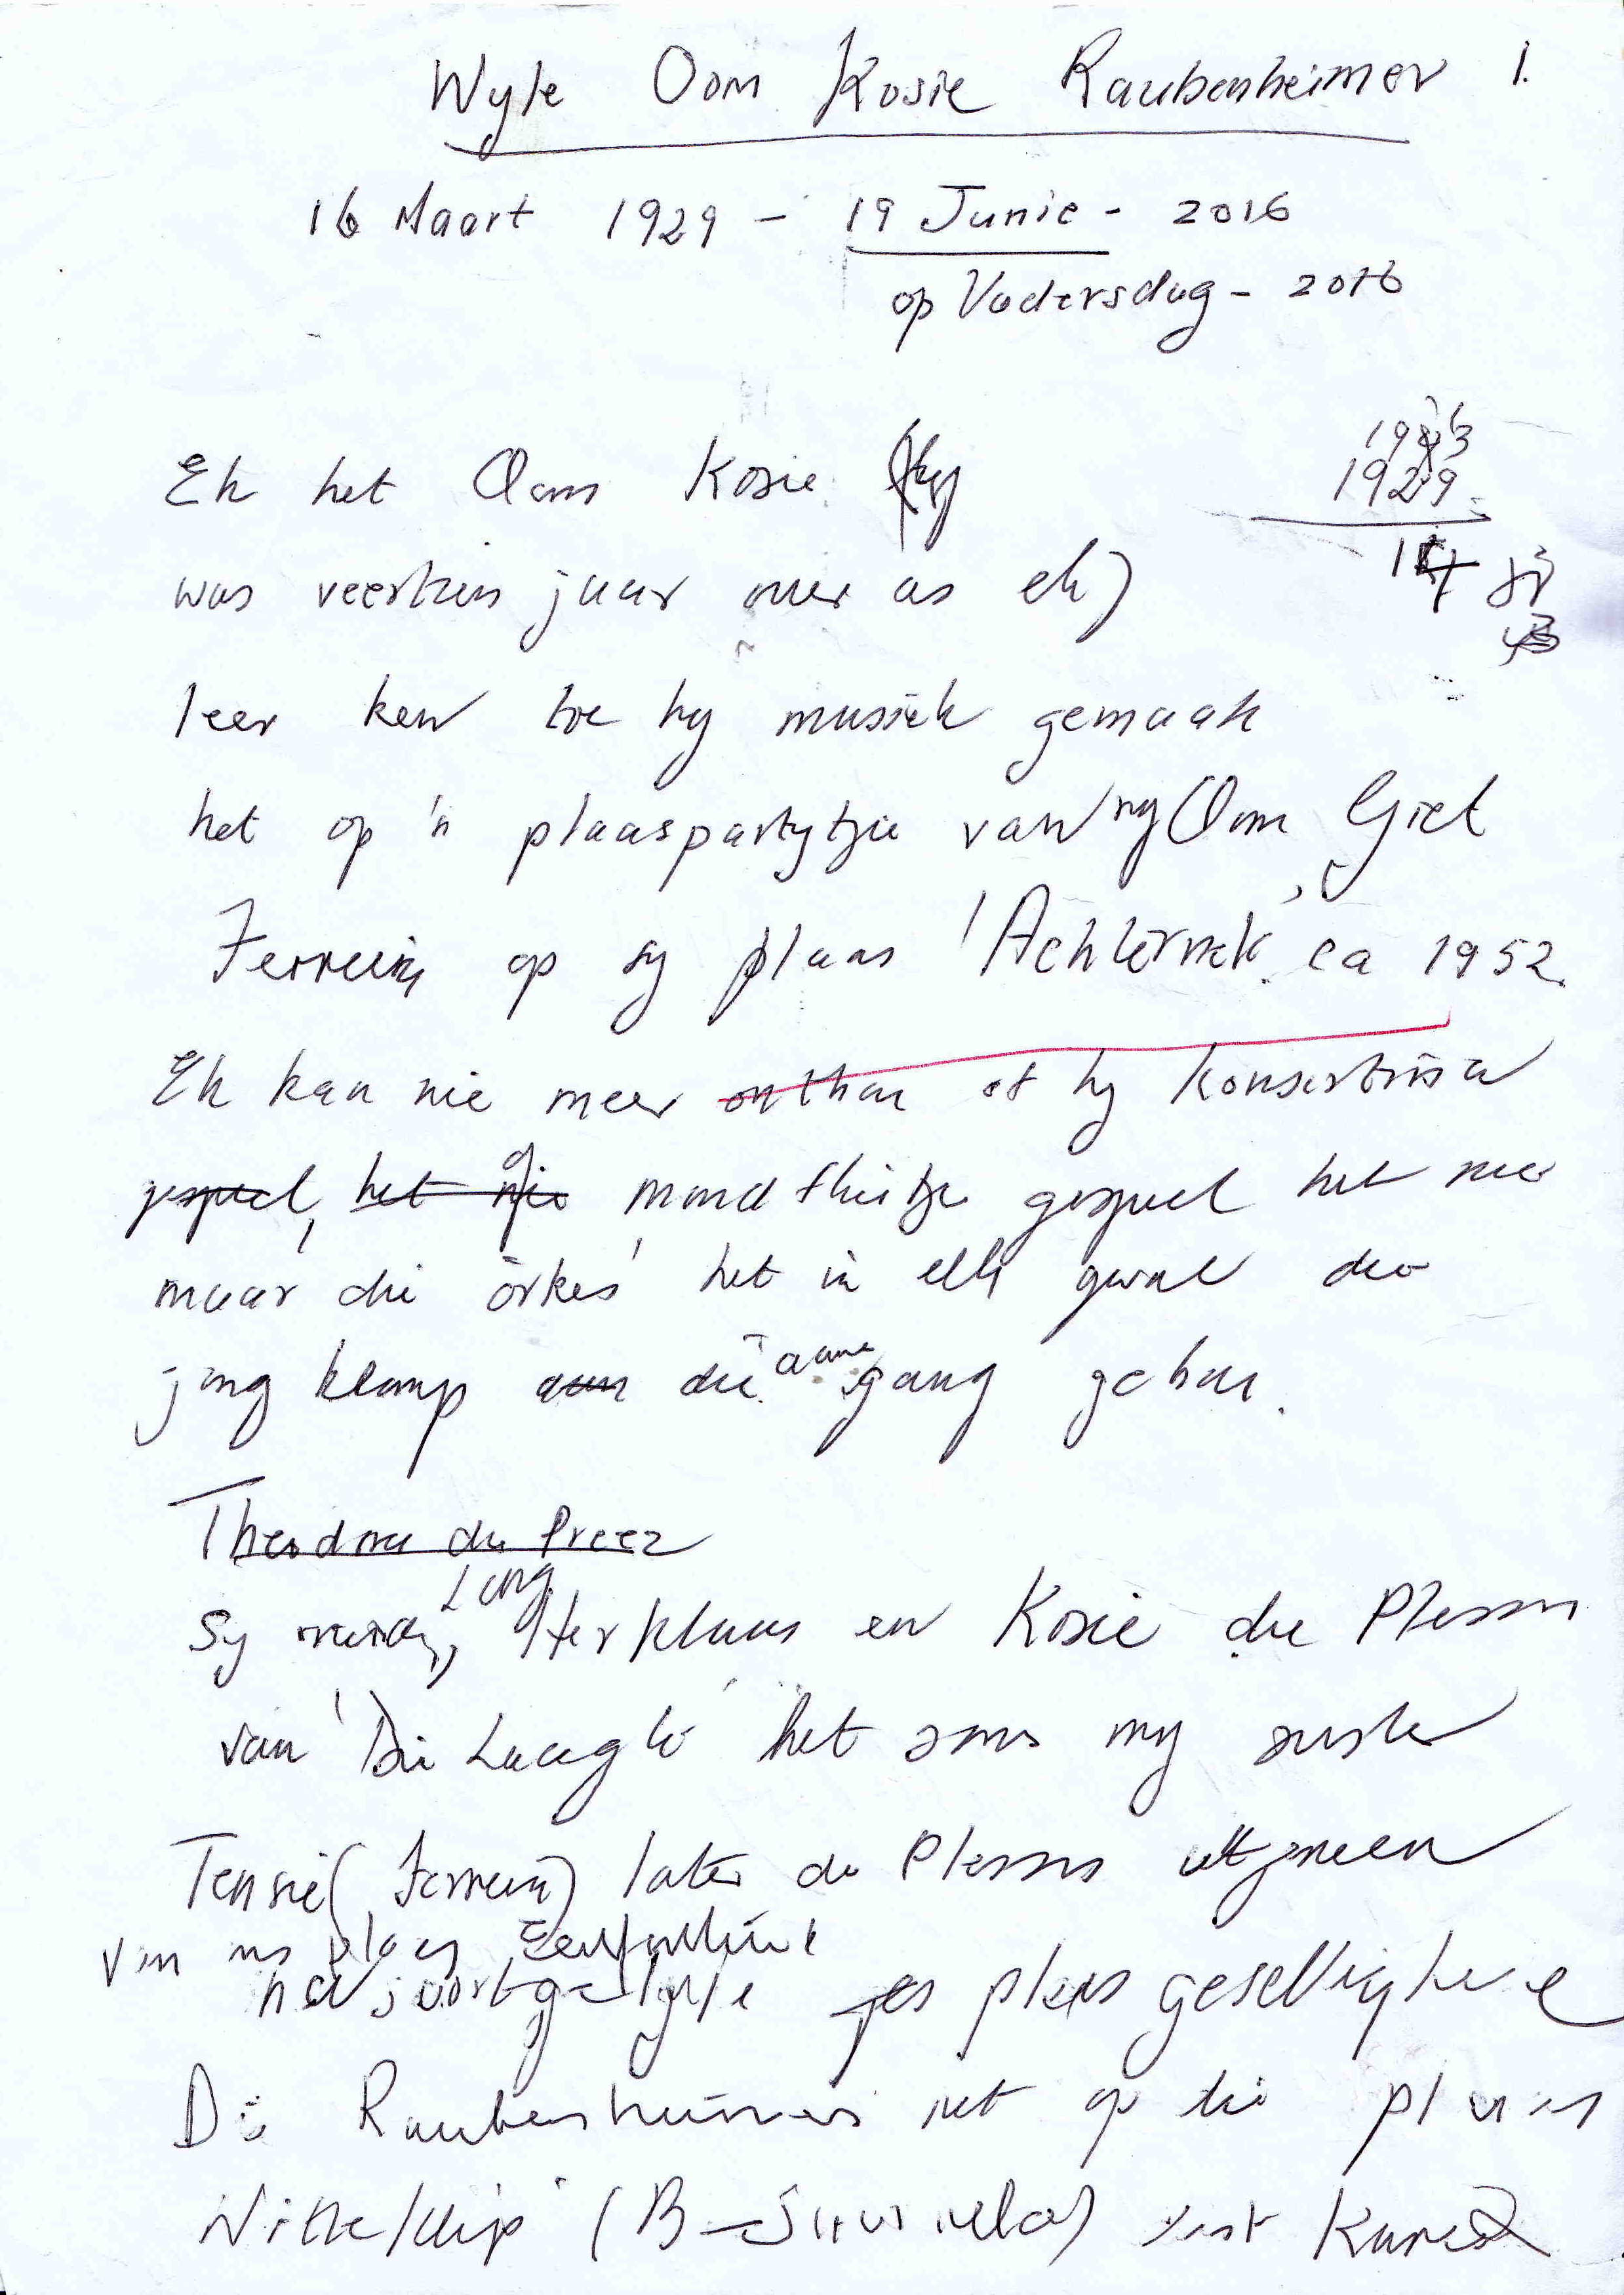 Wyle Oom Kosie Raubenheimer 1.
16 Maart 1929 - 19 Junie - 2016
op Vadersdag - 2016
1929
Ek het Oom Kosie (hy
was veertien jaar ouer as ek)
leer ken toe hy musiek gemaak
het op 'n plaaspartytjie van my Oom Giel
Ferreira op sy plaas 'Achternek' ca 1952.
Ek kan nie meer onthou of hy konsertina
gespeel, het nie mondfluitjie gespeel het nie
maar die orkes het in elk geval die
jong klomp aan die gang gehou.
Theodora du Preez
Sy , Lang Herklaas en Kosie du Plessis
van 'Die Laagte' het soms my suster
Tensie (Ferreira) later du Plessis uitgeneem
van ons plaas
na plaas gesellighede
Die Raubenheimers het op die plaas
Witteklip